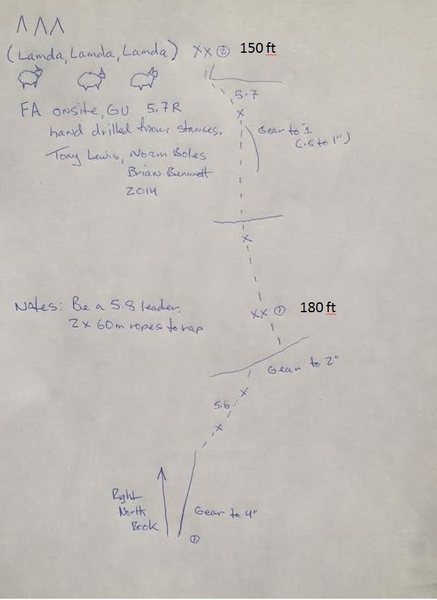 Λ Λ Λ
(Lamda, Lamda, Lamda) XX ② 150 ft
FA onsite, GU 5.7R
hand drilled from stances.
Tony Lewis, Norm Boles
Brian Bennett
2014
5.7
x
Gear to 1"
(.5 to 1")
x
Notes: Be a 5.8 leader.
2 x 60m ropes to rap
XX ① 180 ft
Gear to 2"
x
5.6
x
Right
North
Book
Gear to 4"